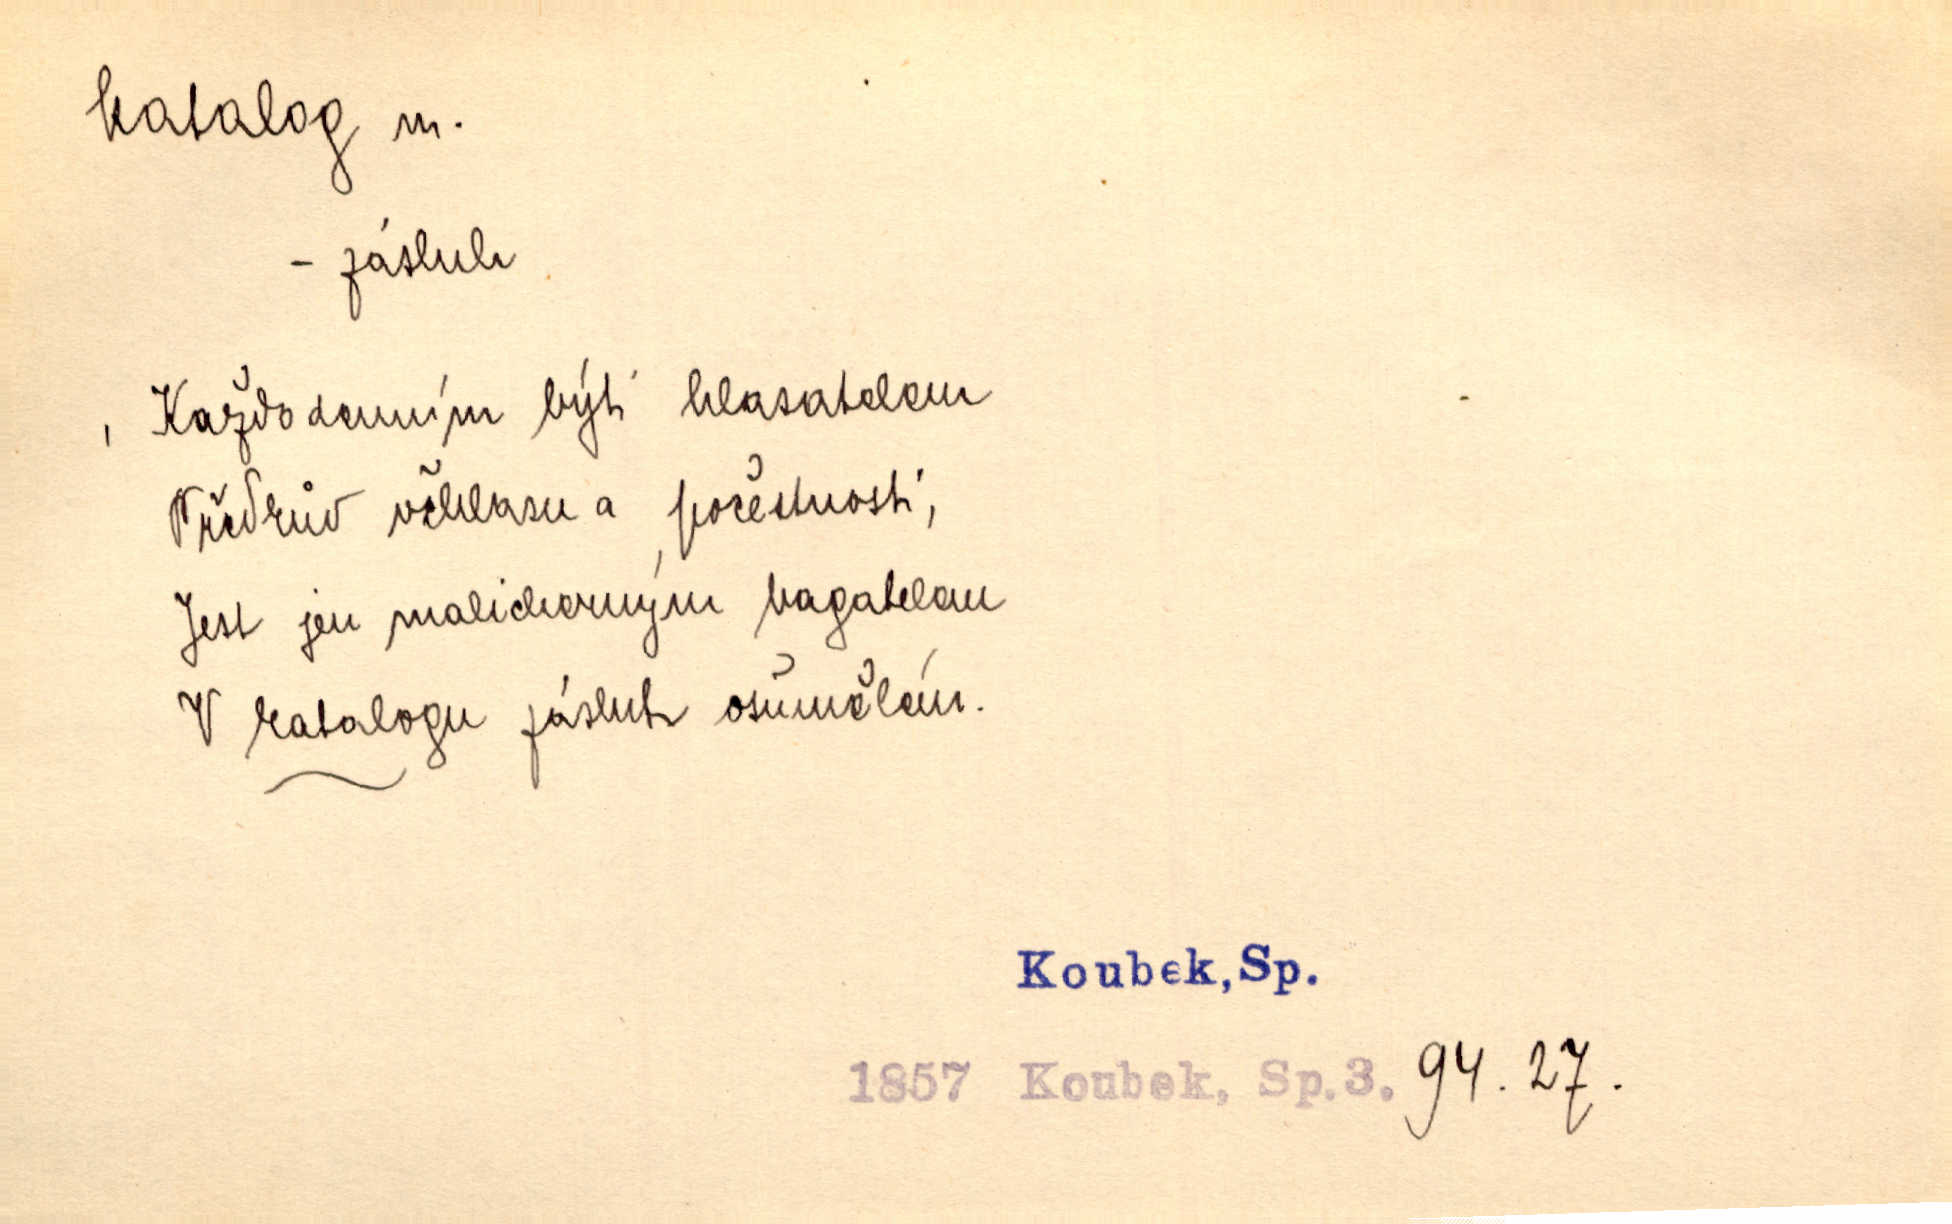 katalog m.
- zásluh
Každodenním býti hlasatelem
Předkův věhlasu a počestnosti,
Jest jen malicherným bagatelem
V katalogu zásluh
Koubek, Sp.
1857 Koubek, Sp.3. 94. 27.